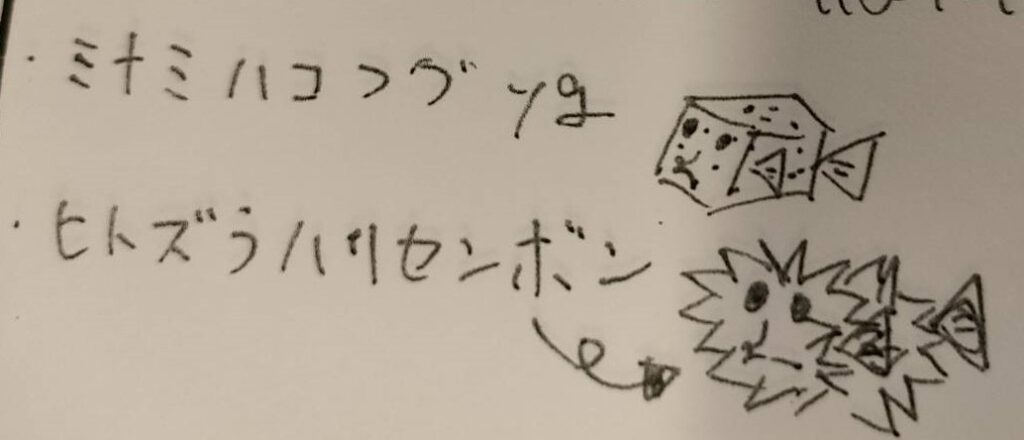 ・ミナミハコフグ yg
・ヒトズラハリセンボン